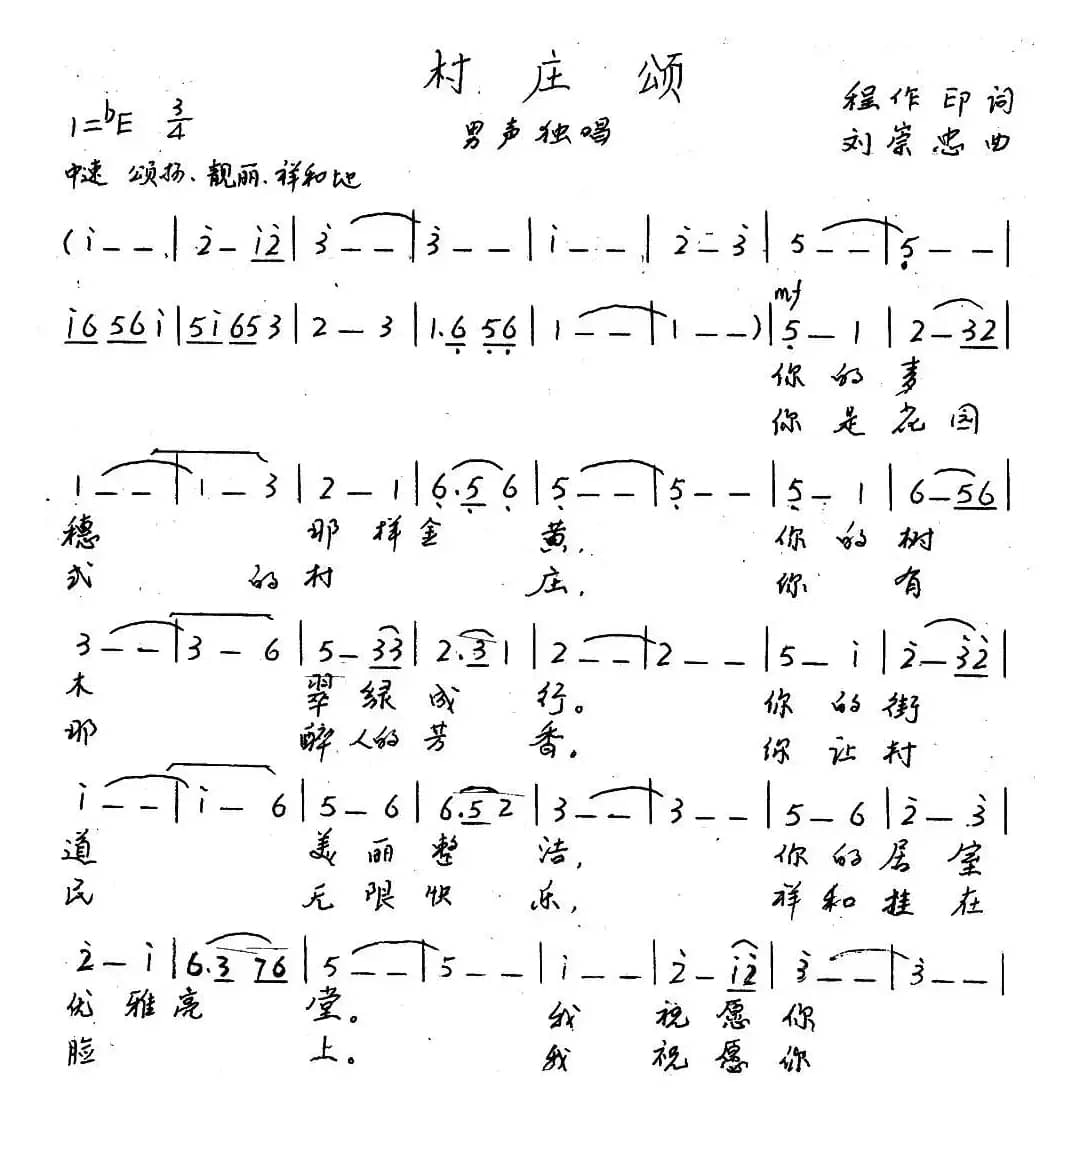 村庄颂
男声独唱
程作印词
刘崇忠曲
1=bE 3/4
中速 颂扬、靓丽、祥和地
(i – – | 2 – i2 | 3 – – | 3 – – | i – – | 2 – 3 | 5 – – | 5 – – |
mf
i6 56 i | 5i 65 3 | 2 – 3 | 1.6 56 | 1 – – | 1 – – ) | 5 – 1 | 2 – 32 |
你的麦
你是花园
1 – – | 1 – 3 | 2 – 1 | 6.5 6 | 5 – – | 5 – – | 5 – 1 | 6 – 56 |
穗 那样金黄, 你的树
式 的村庄, 你有
3 – – | 3 – 6 | 5 – 33 | 2.3 1 | 2 – – | 2 – – | 5 – i | 2 – 32 |
木 翠绿成行。 你的街
那 醉人的芳香。 你让村
i – – | i – 6 | 5 – 6 | 6.5 2 | 3 – – | 3 – – | 5 – 6 | 2 – 3 |
道 美丽整洁, 你的居室
民 无限快乐, 祥和挂在
2 – i | 6.3 76 | 5 – – | 5 – – | i – – | 2 – i2 | 3 – – | 3 – – |
优雅亮堂。 我祝愿你
脸 上。 我祝愿你